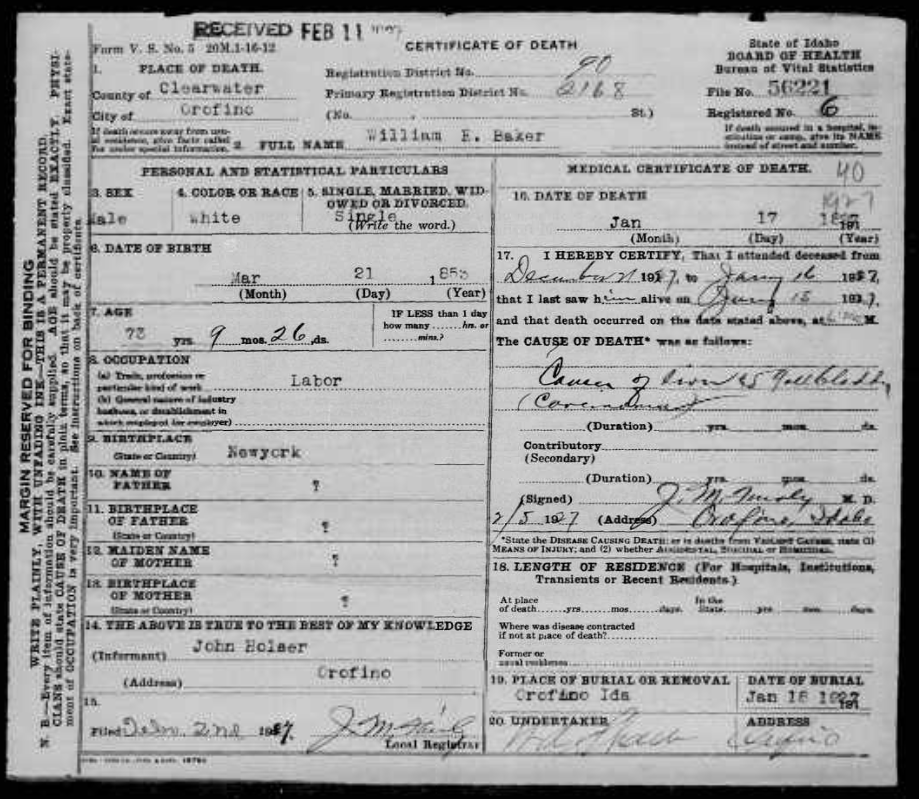 RECEIVED FEB 11
Form V. S. No. 5 20M.1-16-12
CERTIFICATE OF DEATH
State of Idaho
BOARD OF HEALTH
Bureau of Vital Statistics
1. PLACE OF DEATH.
County of Clearwater
City of Orofino
Registration District No. 90
Primary Registration District No. 2168
(No. , St.)
File No. 56221
Registered No. 6
If death occurs away from usual residence, give facts called for under special information.
If death occurred in a hospital, institution or camp, give its NAME instead of street and number.
2. FULL NAME William E. Baker
PERSONAL AND STATISTICAL PARTICULARS
3. SEX
Male
4. COLOR OR RACE
White
5. SINGLE, MARRIED, WIDOWED OR DIVORCED.
Single
(Write the word.)
6. DATE OF BIRTH
Mar 21 1853
(Month) (Day) (Year)
7. AGE
73 yrs. 9 mos. 26 ds.
IF LESS than 1 day
how many ...... hrs. or
........ mins.?
8. OCCUPATION
(a) Trade, profession or
particular kind of work Labor
(b) General nature of industry
business, or establishment in
which employed (or employer)
9. BIRTHPLACE
(State or Country) Newyork
10. NAME OF
FATHER ?
11. BIRTHPLACE
OF FATHER
(State or Country) ?
12. MAIDEN NAME
OF MOTHER ?
13. BIRTHPLACE
OF MOTHER
(State or Country) ?
14. THE ABOVE IS TRUE TO THE BEST OF MY KNOWLEDGE
(Informant) John Holser
(Address) Orofino
15.
Filed 2nd 1927.
Local Registrar
MEDICAL CERTIFICATE OF DEATH. 40
16. DATE OF DEATH 1927
Jan 17
(Month) (Day) (Year)
17. I HEREBY CERTIFY, That I attended deceased from
December 21 1927, to Jany 16 1927,
that I last saw him alive on 15 1927,
and that death occurred on the date stated above, at M.
The CAUSE OF DEATH* was as follows:
Cancer of
(Duration) yrs. mos. ds.
Contributory
(Secondary)
(Duration) yrs. mos. ds.
(Signed) J. M. M. D.
2/5 1927 (Address) Orofino, Idaho
*State the DISEASE CAUSING DEATH; or in deaths from VIOLENT CAUSES, state (1) MEANS OF INJURY; and (2) whether ACCIDENTAL, SUICIDAL or HOMICIDAL.
18. LENGTH OF RESIDENCE (For Hospitals, Institutions,
Transients or Recent Residents.)
At place
of death......yrs......mos.......days.
In the
State......yrs......mos.......days.
Where was disease contracted
if not at place of death?
Former or
usual residence
19. PLACE OF BURIAL OR REMOVAL
Orofino Ida
DATE OF BURIAL
Jan 18 1927
20. UNDERTAKER
ADDRESS
MARGIN RESERVED FOR BINDING
WRITE PLAINLY, WITH UNFADING INK—THIS IS A PERMANENT RECORD.
N. B.—Every item of information should be carefully supplied. AGE should be stated EXACTLY. PHYSICIANS should state CAUSE OF DEATH in plain terms, so that it may be properly classified. Exact statement of OCCUPATION is very important. See instructions on back of certificate.